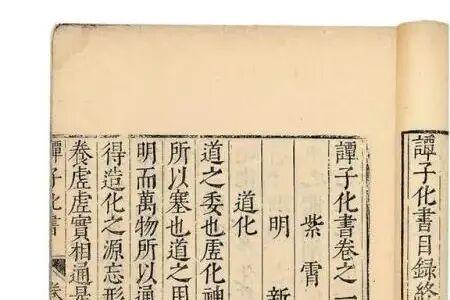 譚子化書目録終
譚子化書卷之一
紫霄
明 新
道化
道之委也虛化神
所以塞也道之用
明而萬物所以通
得造化之源忘形
養虛虛實相通是
譚子化書 卷